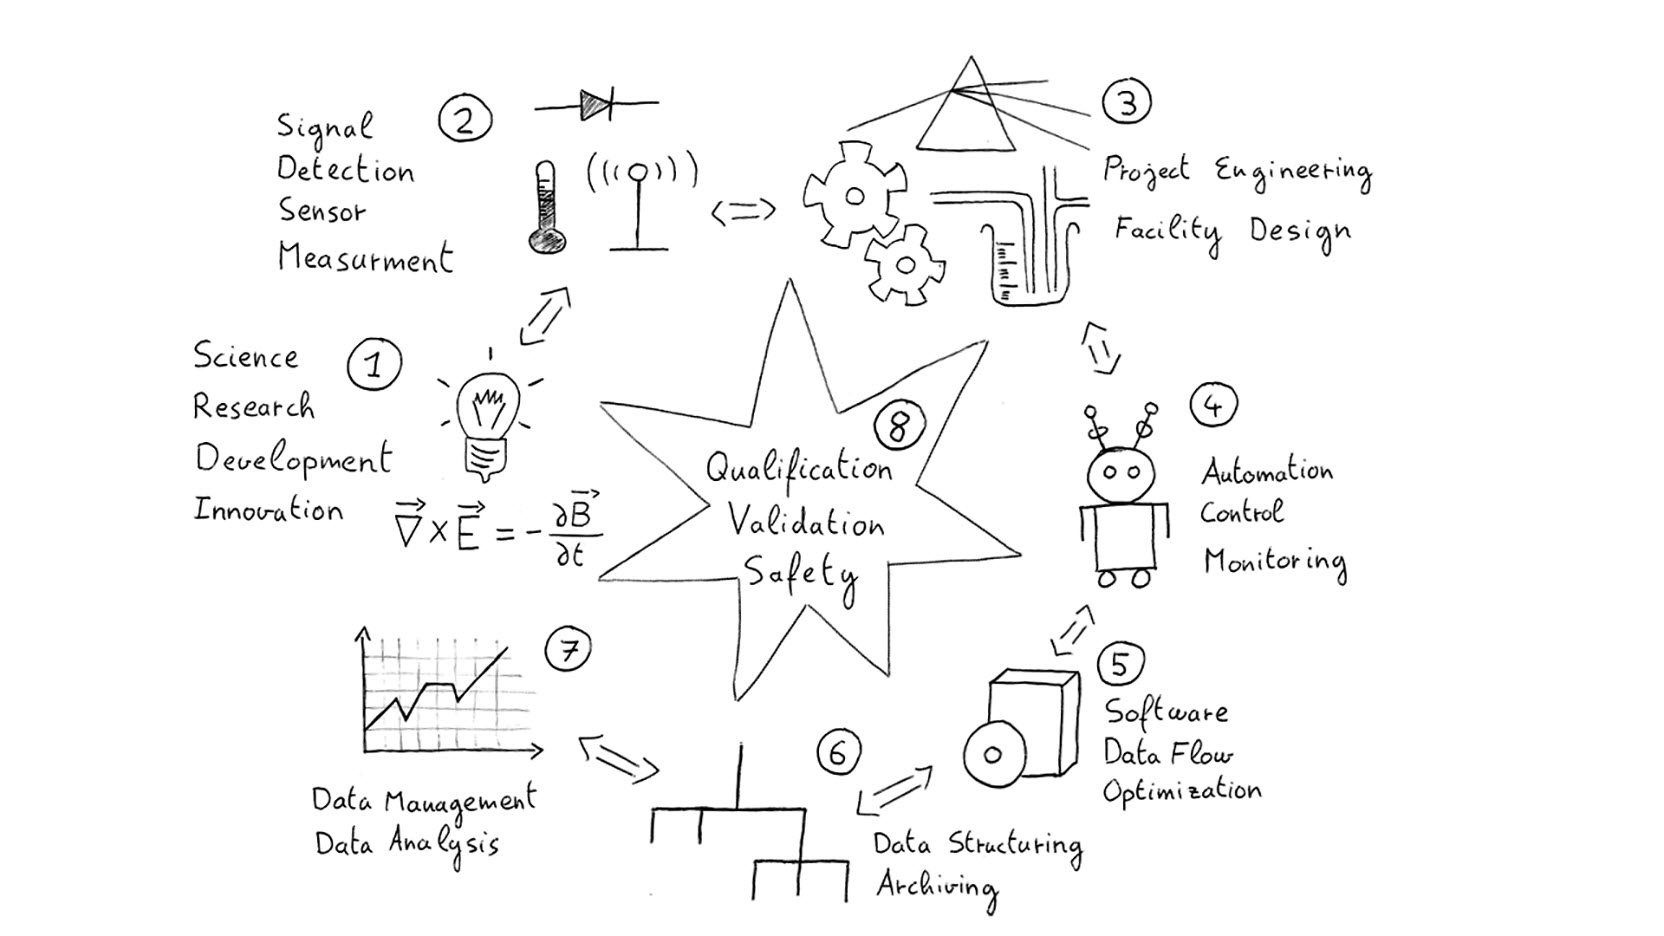 1
Science
Research
Development
Innovation
∇⃗ × E⃗ = - ∂B⃗/∂t
2
Signal
Detection
Sensor
Measurment
3
Project Engineering
Facility Design
4
Automation
Control
Monitoring
5
Software
Data Flow
Optimization
6
Data Structuring
Archiving
7
Data Management
Data Analysis
8
Qualification
Validation
Safety